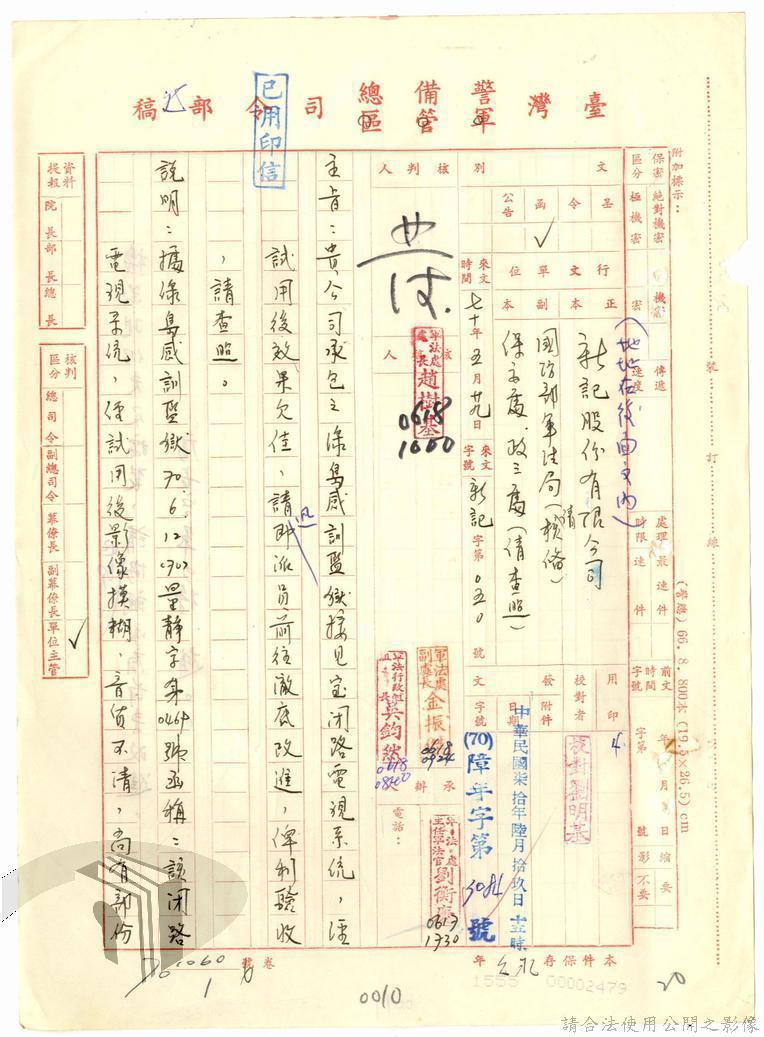 臺灣警備總司令部稿
軍管區
已用印信
附加標示：
裝訂線
(警總) 66. 8. 800本 (19.5×26.5) cm
保密區分 絕對機密 極機密 機密 密
傳遞速度
處理時限 最速件 速件
前文時間字號 年 月 日 字第 號
縮影 要 不要
文別 呈 令 函 公告
✓
行文單位 正本 副本
(地址在後面文內)
新記股份有限公司
國防部軍法局(請核備)
保安處、政三處(請查照)
來文時間 七十年五月廿九日
來文字號 新記字第〇五〇號
用印
校對者
校對劉明基
發文 附件 日期 字號
中華民國柒拾年陸月拾玖日 時
(70)障年字第3084號
核判人
核人
軍法處處長趙樹基
0618
1000
軍法處副處長金振
0618
0924
軍法行政組組長吳鈞
0618
承辦
軍法處主任軍法官劉衡
0617
1730
電話：
主旨：貴公司承包之綠島感訓監獄接見室閉路電視系統，經
試用後效果欠佳，請即派員前往澈底改進，俾利驗收
迅
，請查照。
說明：據綠島感訓監獄70.6.12(70)量靜字第0469號函稱：該閉路
電視系統，經試用後影像模糊，音質不清，尚有部份
資料提報 院長 部長 總長
核判區分 總司令 副總司令 幕僚長 副幕僚長 單位主管
✓
卷號
本件保存 年
1555 00002479
0010
20
請合法使用公開之影像